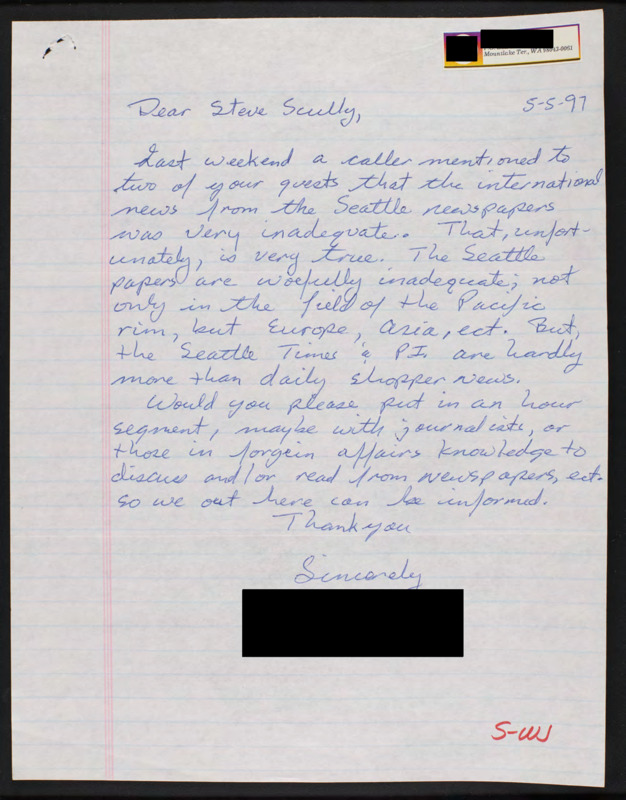 Mountlake Ter, WA 98043-0051
Dear Steve Scully,
5-5-97
Last weekend a caller mentioned to
two of your guests that the international
news from the Seattle newspapers
was very inadequate. That, unfort-
unately, is very true. The Seattle
papers are woefully inadequate; not
only in the field of the Pacific
rim, but Europe, Asia, ect. But,
the Seattle Times & P.I. are hardly
more than daily shopper news.
Would you please put in an hour
segment, maybe with journalists, or
those in forgein affairs knowledge to
discuss and/or read from newspapers, ect.
so we out here can be informed.
Thankyou
Sincerely